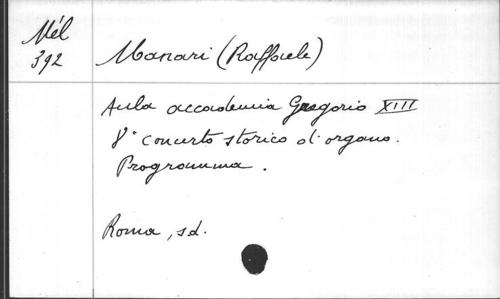 Mél
392
Manari (Raffaele)
Aula accademia Gregorio XIII
8° concerto storico d'organo.
Programma.
Roma, s.d.